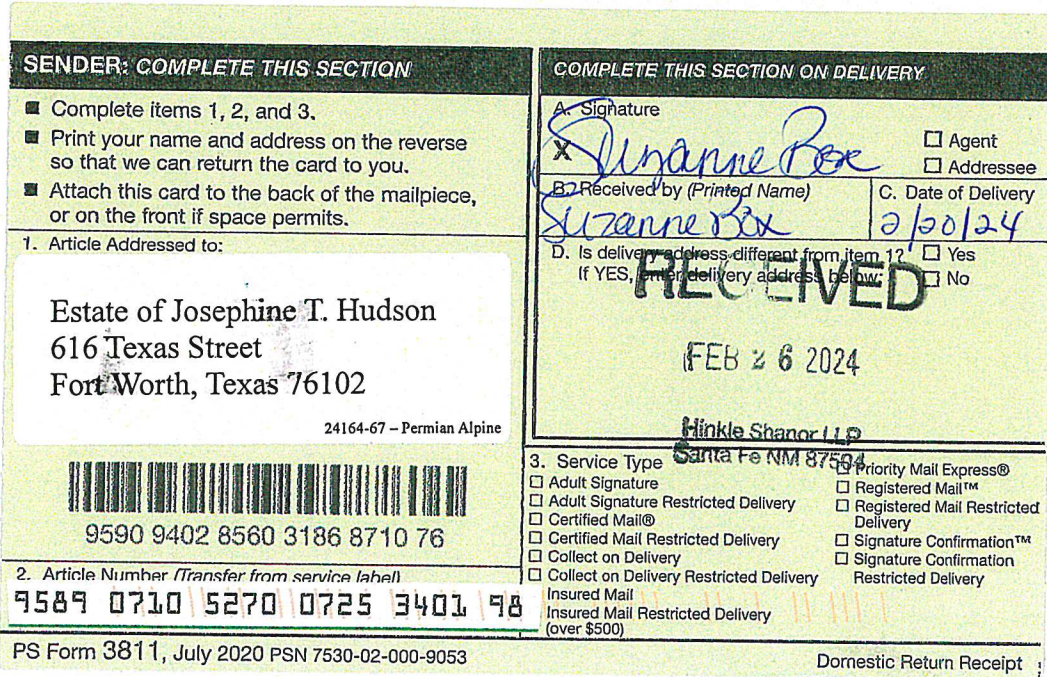 SENDER: COMPLETE THIS SECTION
■ Complete items 1, 2, and 3.
■ Print your name and address on the reverse
so that we can return the card to you.
■ Attach this card to the back of the mailpiece,
or on the front if space permits.
1. Article Addressed to:
Estate of Josephine T. Hudson
616 Texas Street
Fort Worth, Texas 76102
24164-67 – Permian Alpine
9590 9402 8560 3186 8710 76
2. Article Number (Transfer from service label)
9589 0710 5270 0725 3401 98
PS Form 3811, July 2020 PSN 7530-02-000-9053
COMPLETE THIS SECTION ON DELIVERY
A. Signature
X Suzanne Box
☐ Agent
☐ Addressee
B. Received by (Printed Name)
Suzanne Box
C. Date of Delivery
2/20/24
D. Is delivery address different from item 1? ☐ Yes
If YES, enter delivery address below: ☐ No
RECEIVED
FEB 26 2024
Hinkle Shanor LLP
Santa Fe NM 87504
3. Service Type
☐ Adult Signature
☐ Adult Signature Restricted Delivery
☐ Certified Mail®
☐ Certified Mail Restricted Delivery
☐ Collect on Delivery
☐ Collect on Delivery Restricted Delivery
Insured Mail
Insured Mail Restricted Delivery
(over $500)
☐ Priority Mail Express®
☐ Registered Mail™
☐ Registered Mail Restricted
Delivery
☐ Signature Confirmation™
☐ Signature Confirmation
Restricted Delivery
Domestic Return Receipt